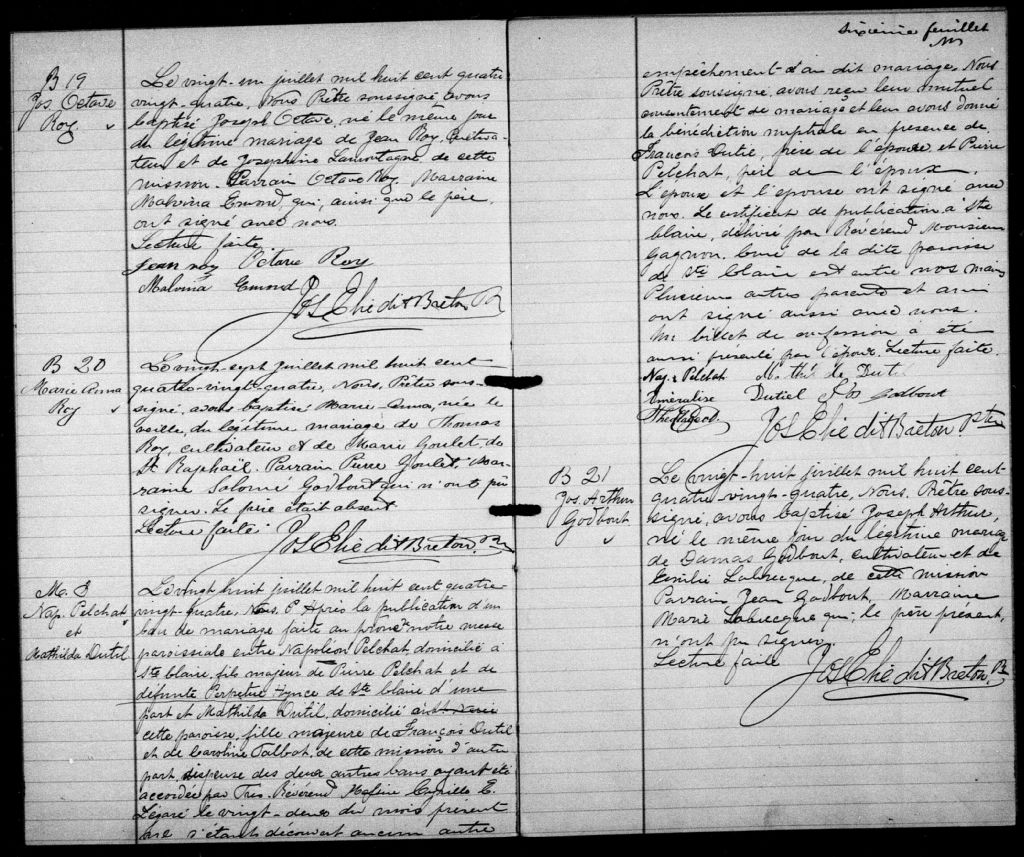 B 19
Jos. Octave
Roy
Le vingt-un juillet mil huit cent quatre
vingt-quatre, Nous Prêtre soussigné, avons
baptisé Joseph Octave, né le même jour
du légitime mariage de Jean Roy, cultiva-
teur et de Josephine Lamontagne, de cette
mission. Parrain Octave Roy. Marraine
Malvina Emond, qui, ainsi que le père,
ont signé avec nous.
Lecture faite
Jean roy Octave Roy
Malvina Emond
Jos Elie dit Breton Ptr
B 20
Marie Anna
Roy
Le vingt-sept juillet mil huit cent
quatre-vingt-quatre, Nous, Prêtre sous-
signé, avons baptisé Marie-Anna, née la
veille, du légitime mariage de Thomas
Roy, cultivateur et de Marie Goulet, de
St. Raphaël. Parrain Pierre Goulet, Mar-
raine Salomé Godbout qui n'ont pu
signer. Le père était absent.
Lecture faite
Jos Elie dit Breton, Ptr
M. 8
Nap. Pelchat
et
Mathilda Dutil
Le vingt huit juillet mil huit cent quatre-
vingt-quatre, Nous, P Après la publication d'un
ban de mariage faite au prône notre messe
paroissiale entre Napoléon Pelchat domicilié à
Ste Claire, fils majeur de Pierre Pelchat et de
défunte Perpetue de Ste Claire d'une
part et Mathilda Dutil, domicilié
cette paroisse, fille majeure de François Dutil
et de Caroline Talbot, de cette mission d'autre
part, dispense des deux autres bans ayant été
accordée par Très Révérend Cyrille E.
Légaré le vingt-deux du mois présent
ne s'étant découvert aucun autre
sixième feuillet
empêchement au dit mariage. Nous
Prêtre soussigné, avons reçu leur mutuel
consentement de mariage et leur avons donné
la bénédiction nuptiale en présence de
François Dutil, père de l'épouse et Pierre
Pelchat, père de l'époux.
L'époux et l'épouse ont signé avec
nous. Le certificat de publication à Ste
Claire, délivré par Révérend Monsieur
Gagnon, Curé de la dite paroisse
de Ste Claire est entre nos mains
Plusieurs autres parents et amis
ont signé aussi avec nous.
Un billet de confession a été
aussi présenté par l'époux. Lecture faite.
Nap. Pelchat Dutil
Eméralise Dutiel Jos Godbout
Jos Elie dit Breton Ptre
B 21
Jos. Arthur
Godbout
Le vingt-huit juillet mil huit cent
quatre-vingt-quatre, Nous, Prêtre sous-
signé, avons baptisé Joseph Arthur,
né le même jour du légitime mariage
de Damas Godbout, cultivateur et de
Emilie Labrecque, de cette mission
Parrain Jean Godbout, Marraine
Marie Labrecque qui, le père présent,
n'ont pu signer
Lecture faite
Jos Elie dit Breton, Ptr